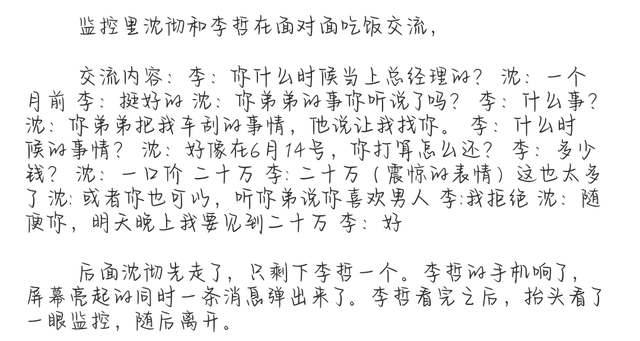 监控里沈彻和李哲在面对面吃饭交流,
交流内容: 李: 你什么时候当上总经理的? 沈: 一个
月前 李: 挺好的 沈: 你弟弟的事你听说了吗? 李: 什么事?
沈: 你弟弟把我车刮的事情, 他说让我找你。 李: 什么时
候的事情? 沈: 好像在6月14号, 你打算怎么还? 李: 多少
钱? 沈: 一口价 二十万 李: 二十万 (震惊的表情) 这也太多
了 沈: 或者你也可以, 听你弟说你喜欢男人 李:我拒绝 沈: 随
便你, 明天晚上我要见到二十万 李: 好
后面沈彻先走了, 只剩下李哲一个。李哲的手机响了,
屏幕亮起的同时一条消息弹出来了。李哲看完之后, 抬头看了
一眼监控, 随后离开。